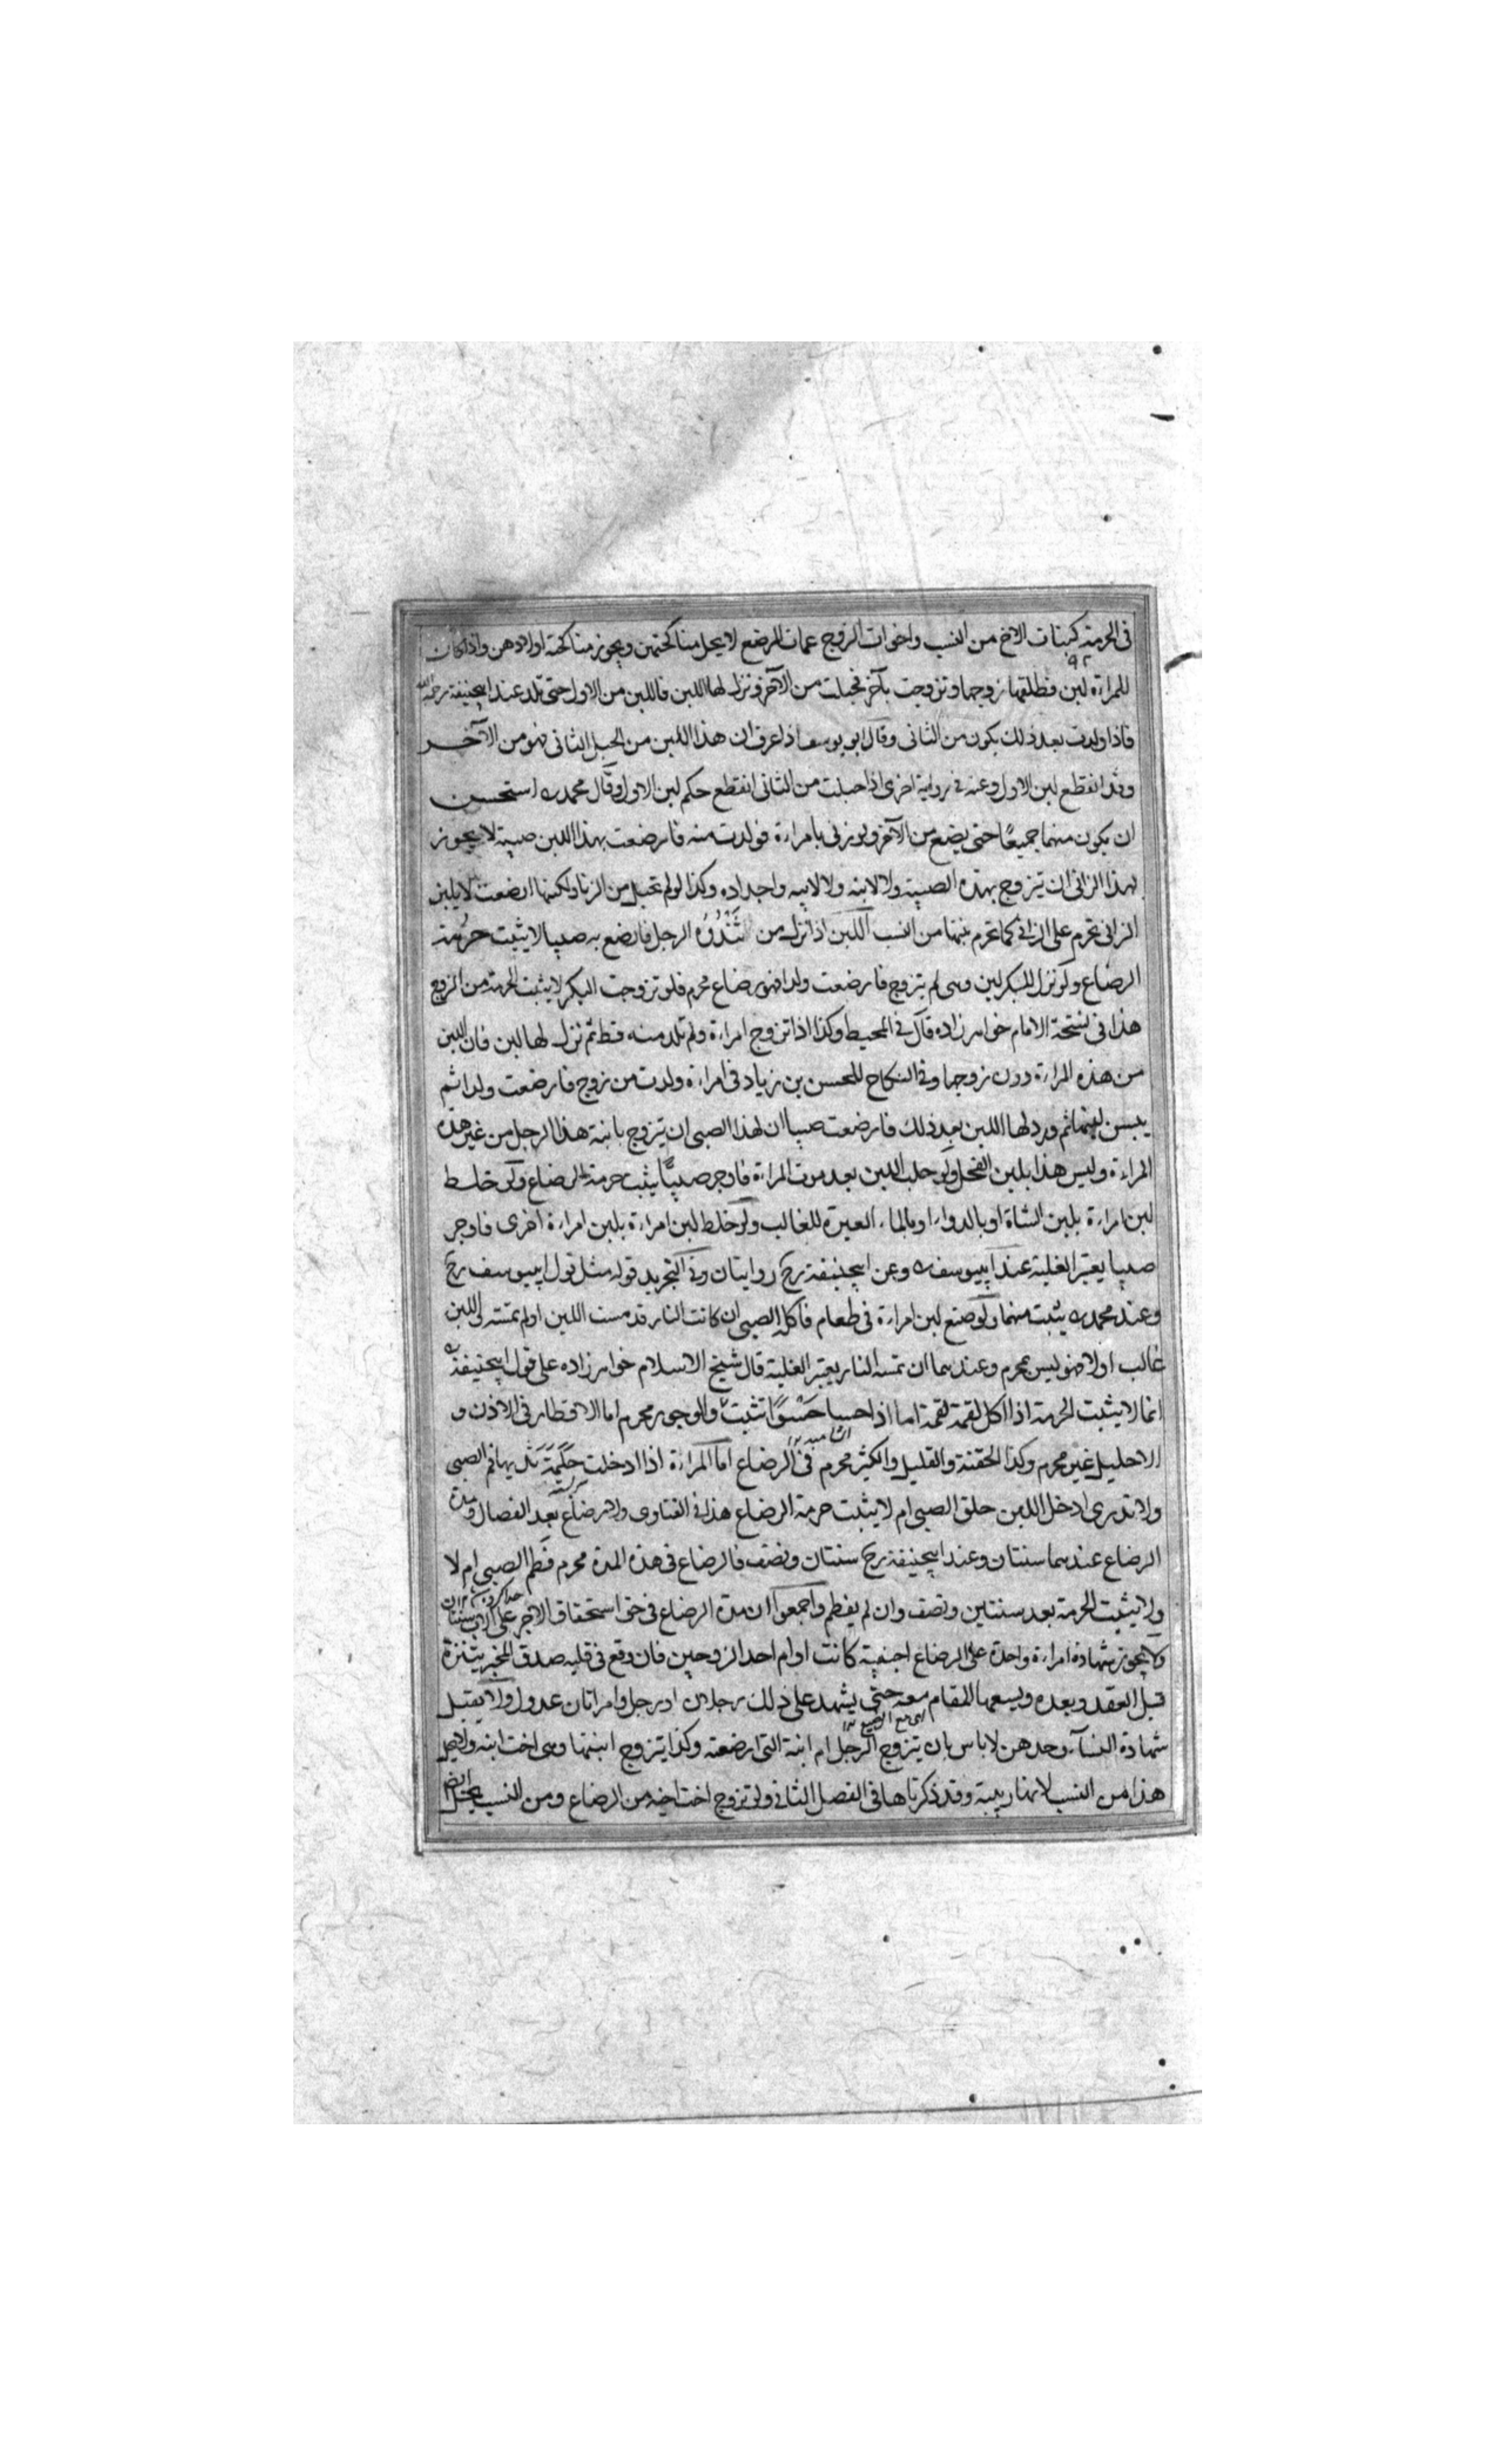 فى الحرمة كبنات الاخ من النسب واخوات الزوج عمات الرضع لا يحل مناكحتهن ويجوز مناكحة اولادهن واذا كان
للمراءة لبن فطلقها زوجها وتزوجت بآخر فحبلت من الآخر ونزل لها اللبن فاللبن من الاول حتى تلد عند ابيحنيفة رحمه الله
فاذا ولدت بعد ذلك يكون من الثانى وقال ابو يوسف اذا عرف ان هذا اللبن من الحبل الثانى فهو من الآخر
وقد انقطع لبن الاول وعنه فى رواية اخرى اذا حبلت من الثانى انقطع حكم لبن الاول وقال محمد ره استحسن
ان يكون منهما جميعًا حتى يضع من الآخر ولو زنى بامراءة فولدت منه فارضعت بهذا اللبن صبية لا يجوز
لهذا الزانى ان يتزوج بهذه الصبية ولا لابنه ولا لابيه واجداده وكذا لو لم تحبل من الزنا ولكنها ارضعت لا بلبن
الزانى تحرم على الزانى كما تحرم بنتها من النسب اللبن اذا نزل من ثَنْدُوَة الرجل فارضع به صبيا لا يثبت حرمة
الرضاع ولو نزل للبكر لبن وهى لم يتزوج فارضعت ولدا فهو رضاع محرم فلو تزوجت البكر لا يثبت الحرمة من الزوج
هذا فى نسخة الامام خواهرزاده قال فى المحيط وكذا اذا تزوج امراءة ولم تلد منه قط ثم نزل لها لبن فان اللبن
من هذه المراءة دون زوجها وفى النكاح للحسن بن زياد فى امراءة ولدت من زوج فارضعت ولدا ثم
يبس لبنها ثم درّ لها اللبن بعد ذلك فارضعت صبيا ان لهذا الصبى ان يتزوج بابنة هذا الرجل من غير هذه
المراءة وليس هذا بلبن الفحل ولو حلب اللبن بعد موت المراءة فاوجر صبيًّا يثبت حرمة الرضاع ولو خلط
لبن امراءة بلبن الشاة او بالدواء او بالماء العبرة للغالب ولو خلط لبن امراءة بلبن امراءة اخرى فاوجر
صبيا يعتبر الغلبة عند ابيوسف ره وعن ابيحنيفة رح روايتان وفى التجريد قوله مثل قول ابيوسف رح
وعند محمد ره يثبت منهما ولو صنع لبن امراءة فى طعام فاكل الصبى ان كانت النار قد مست اللبن او لم تمسه واللبن
غالب او لا فهو ليس بمحرم وعندهما ان تمسه النار يعتبر الغلبة قال شيخ الاسلام خواهرزاده على قول ابيحنيفة ره
انما لا يثبت الحرمة اذا اكل لقمة لقمة اما اذا حسا حَسْوًا تثبت والوجور محرم اما الاقطار فى الاذن و
الاحليل غير محرم وكذا الحقنة والقليل والكثير محرم فى الرضاع اما المراءة اذا ادخلت حَلَمَةَ ثديها فم الصبى
ولا تدرى ادخل اللبن حلق الصبى ام لا يثبت حرمة الرضاع هذا فى الفتاوى ولا رضاع بعد الفصال ومدة
الرضاع عندهما سنتان وعند ابيحنيفة رح سنتان ونصف فالرضاع فى هذه المدة محرم فطم الصبى ام لا
ولا يثبت الحرمة بعد سنتين ونصف وان لم يفطم واجمعوا ان مدة الرضاع فى حق استحقاق الاجر على الاب سنتان
ولا يجوز شهادة امراءة واحدة على الرضاع اجنبية كانت او ام احد الزوجين فان وقع فى قلبه صدق المخبر يتنزه
قبل العقد وبعده ويسعها المقام معه حتى يشهد على ذلك رجلان او رجل وامراتان عدول ولا يقبل
شهادة النساء وحدهن لا باس بان يتزوج الرجل ام ابنة التى ارضعته وكذا يتزوج ابنتها وهى اخت ابنه ولا يحل
هذا من النسب لانها ربيبة وقد ذكرناها فى الفصل الثانى ولو تزوج اخت اخيه من الرضاع ومن النسب يحل ايضا